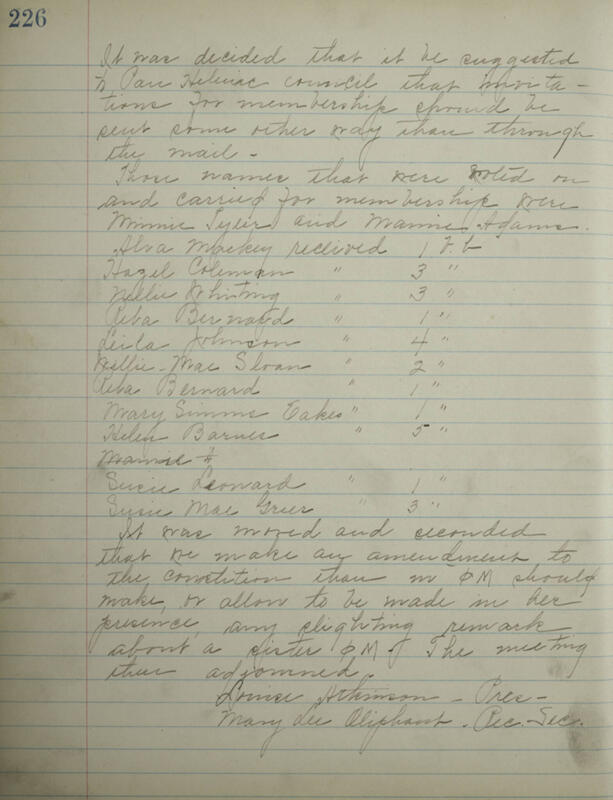 226
It was decided that it be suggested
to Pan Helinac council that invita-
tions for membership should be
sent some other way than through
the mail -
Those names that were voted on
and carried for membership were
Winnie Tyler and Mamie Adams.
Alva Mackey received 1 b.b
Hazel Coleman " 3 "
Nellie Whiting " 3 "
Reba Bernard " 1 "
Leila Johnson " 4 "
Willie-Mae Sloan " 2 "
Reba Bernard " 1 "
Mary Simms Eakes " 1 "
Helen Barnes " 5 "
Mamie
Susie Leonard " 1 "
Susie Mae Grier " 3 "
It was moved and seconded
that we make an amendment to
the constition than no ΦM should
make, or allow to be made in her
presence, any slighting remark
about a sister ΦM. The meeting
then adjourned.
Louise Atkinson - Pres -
Mary Lee Oliphant - Rec. Sec.